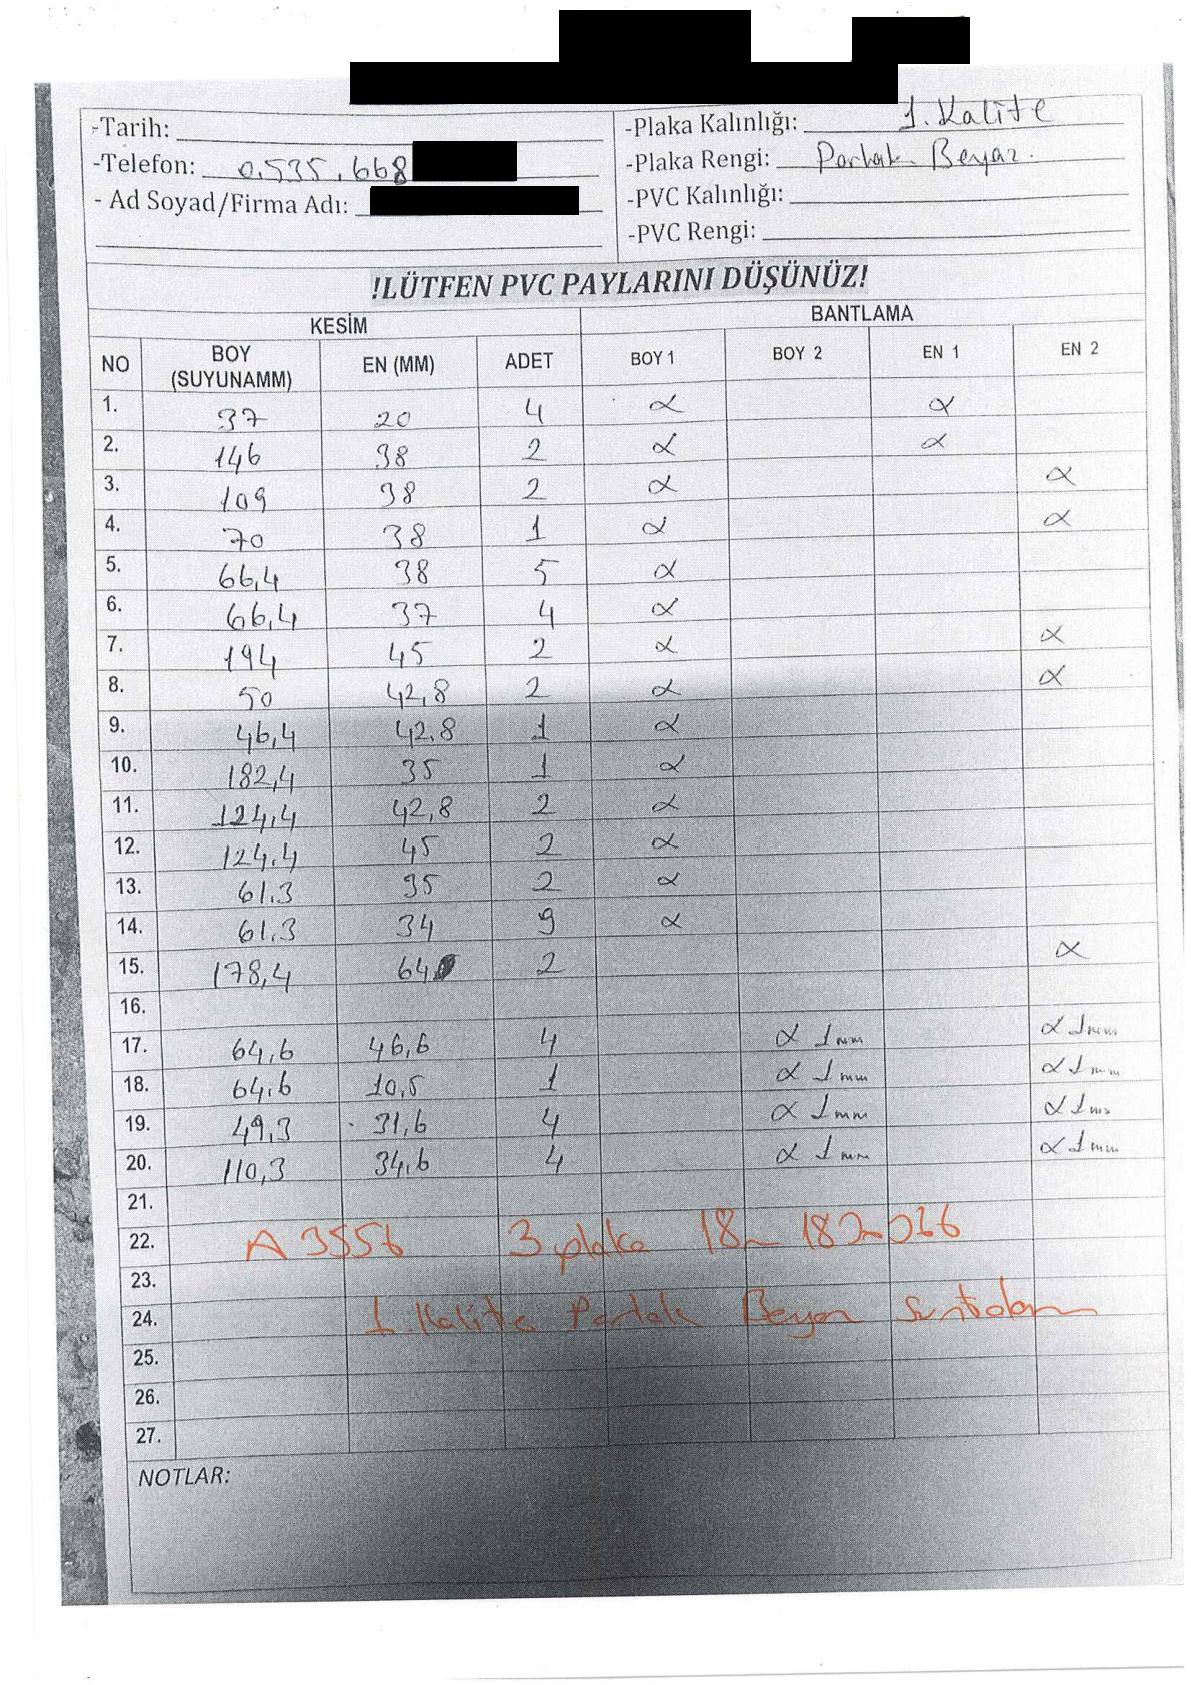 -Tarih:
-Telefon: 0.535.668
- Ad Soyad/Firma Adı:
-Plaka Kalınlığı: 1. Kalite
-Plaka Rengi: Parlak Beyaz.
-PVC Kalınlığı:
-PVC Rengi:
!LÜTFEN PVC PAYLARINI DÜŞÜNÜZ!
KESİM BANTLAMA
NO BOY (SUYUNAMM) EN (MM) ADET BOY 1 BOY 2 EN 1 EN 2
1. 37 20 4 α α
2. 146 38 2 α α
3. 109 38 2 α α
4. 70 38 1 α α
5. 66,4 38 5 α
6. 66,4 37 4 α
7. 194 45 2 α α
8. 50 42,8 2 α α
9. 46,4 42.8 1 α
10. 182,4 35 1 α
11. 124,4 42,8 2 α
12. 124,4 45 2 α
13. 61.3 35 2 α
14. 61.3 34 9 α
15. 178,4 64 2 α
16.
17. 64,6 46,6 4 α 1mm α 1mm
18. 64,6 10,5 1 α 1mm α 1mm
19. 49,3 31,6 4 α 1mm α 1mm
20. 110,3 34,6 4 α 1mm α 1mm
21.
22. A 3556 3 plaka 18
23.
24. 1. Kalite Parlak Beyaz Suntalam
25.
26.
27.
NOTLAR: